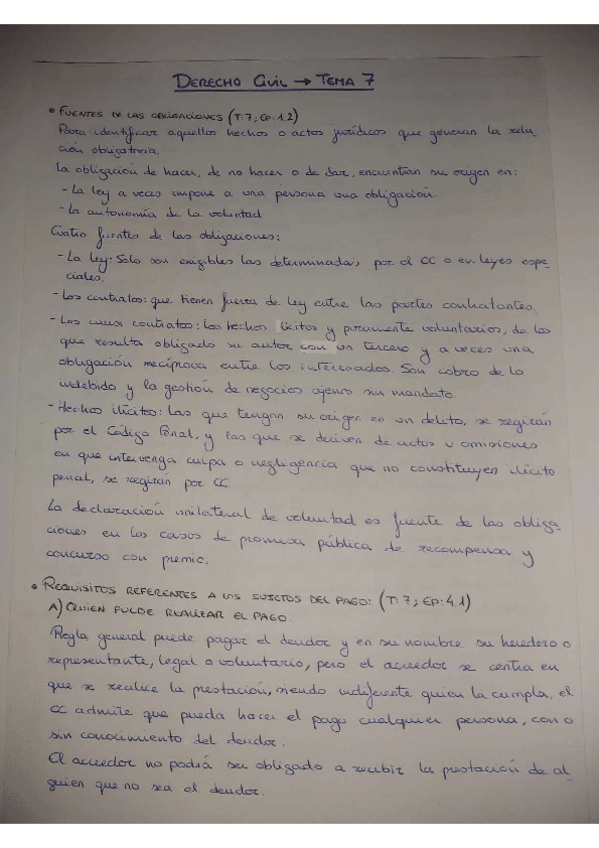 DERECHO CIVIL → TEMA 7
• FUENTES DE LAS OBLIGACIONES (T:7; EP:1.2)
Para identificar aquellos hechos o actos jurídicos que generan la rela-
ción obligatoria.
La obligación de hacer, de no hacer o de dar, encuentran su origen en:
- La ley a veces impone a una persona una obligación.
- La autonomía de la voluntad
Cuatro fuentes de las obligaciones:
- La ley: Solo son exigibles las determinadas por el CC o en leyes espe-
ciales.
- Los contratos: que tienen fuerza de ley entre las partes contratantes.
- Los cuasi contratos: los hechos lícitos y puramente voluntarios, de los
que resulta obligado su autor con un tercero y a veces una
obligación recíproca entre los interesados. Son cobro de lo
indebido y la gestión de negocios ajenos sin mandato.
- Hechos ilícitos: Las que tengan su origen en un delito, se regirán
por el Código Penal, y las que se deriven de actos u omisiones
en que intervenga culpa o negligencia que no constituyen ilícito
penal, se regirán por CC.
La declaración unilateral de voluntad es fuente de las obliga-
ciones en los casos de promesa pública de recompensa y
concurso con premio.
• REQUISITOS REFERENTES A LOS SUJETOS DEL PAGO: (T:7; EP:4.1)
A) QUIEN PUEDE REALIZAR EL PAGO.
Regla general puede pagar el deudor y en su nombre su heredero o
representante, legal o voluntario, pero el acreedor se centra en
que se realice la prestación, siendo indiferente quien la cumpla, el
CC admite que pueda hacer el pago cualquier persona, con o
sin conocimiento del deudor.
El acreedor no podrá ser obligado a recibir la prestación de al-
guien que no sea el deudor.